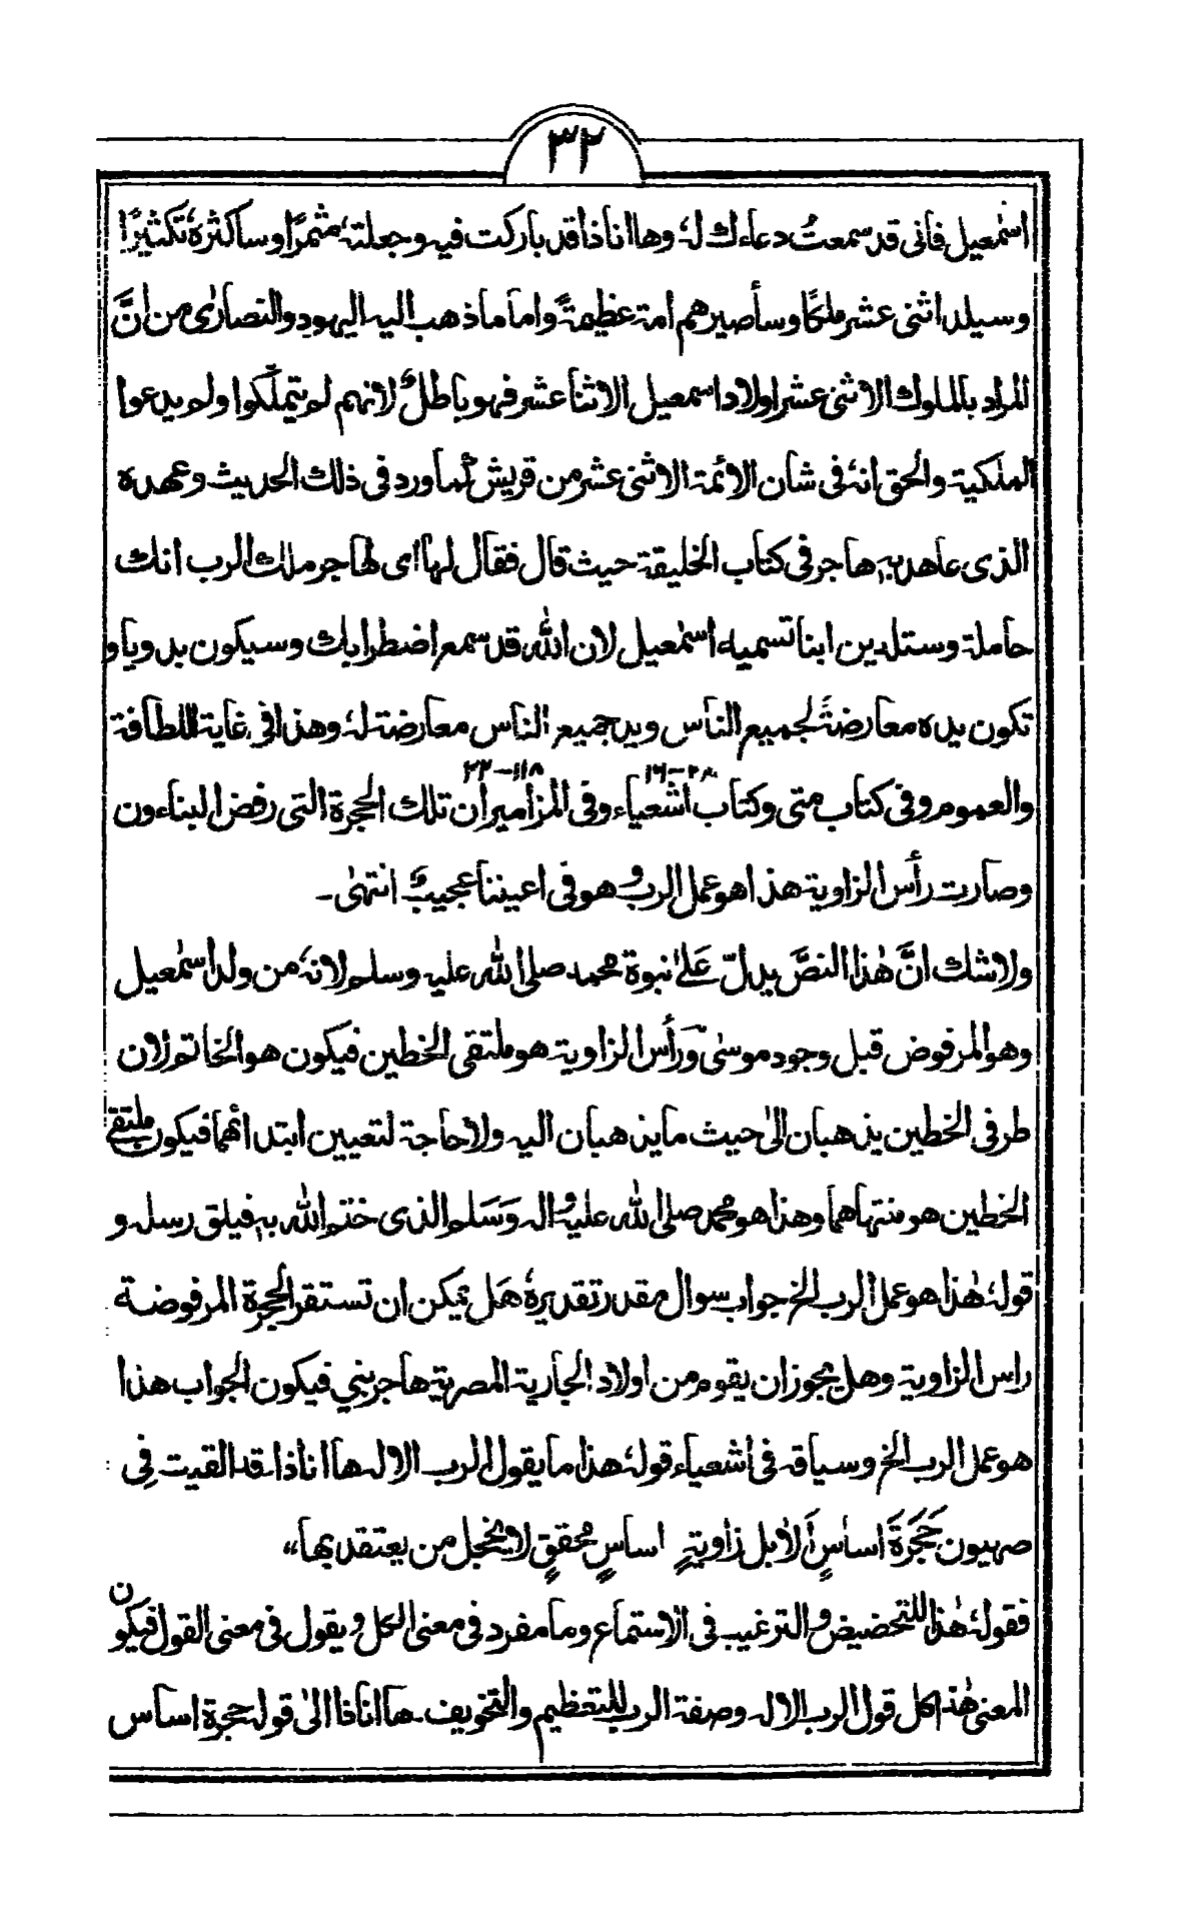 ٣٢
اسمٰعيل فانى قد سمعتُ دعاءك لهٗ وها انا ذا قد باركت فيه وجعلتهٗ مثمرًا وسأكثرهٗ تكثيرًا
وسيلد اثنى عشر ملكًا وسأصيرهم امة عظيمةً واما ما ذهب اليه اليهود والنصارىٰ من انَّ
المراد بالملوك الاثنى عشر اولاد اسمعيل الاثنا عشر فهو باطلٌ لانهم لم يتملّكوا ولم يدعوا
الملكية والحق انهٗ فى شان الائمة الاثنى عشر من قريش كما ورد فى ذلك الحديث وعهده
الذى عاهد به هاجر فى كتاب الخليقة حيث قال فقال لها اى لهاجر ملاك الرب انك
حاملة وستلدين ابنا تسميه اسمٰعيل لان الله قد سمع اضطرابك وسيكون بدويا و
تكون يده معارضةً لجميع الناس ويد جميع الناس معارضة لهٗ وهذا فى غاية اللطافة
٢٨-١٦ ١١٨-٢٢
والعموم وفى كتاب متى وكتاب اشعياء وفى المزامير ان تلك الحجرة التى رفض البناءون
وصارت رأس الزاوية هذا هو عمل الرب وهو فى اعيننا عجيبٌ انتهىٰ-
ولاشك انَّ هٰذا النصَّ يدلّ عَلىٰ نبوة محمد صلى الله عليه وسلم لانهٗ من ولد اسمٰعيل
وهو المرفوض قبل وجود موسىٰ ورَأس الزاوية هو ملتقى الخطين فيكون هو الخاتم لان
طرفى الخطين يذهبان الىٰ حيث ما يذهبان اليه ولا حاجة لتعيين ابتدائهما فيكون ملتقى
الخطين هو منتهاهما وهذا هو محمد صلى الله عليه واله وَسَلم الذى ختم الله به فيلق رسله و
قولهٗ هٰذا هو عمل الرب الخ جواب سوال مقدر تقديرهٗ هَل يمكن ان تستقر الحجرة المرفوضة
راس الزاوية وهل يجوز ان يقوم من اولاد الجارية المصرية هاجر نبي فيكون الجواب هذا
هو عمل الرب الخ وسياقه فى اشعياء قولهٗ هذا ما يقول الرب الاله ها انا ذا قد القيت فِى
صهيون حَجَرَةَ اساسٍ الابل زاويةٍ اساسٍ محققٍ لا يخجل من يعتقد بها،،
فقولهٗ هٰذا للتحضيض والترغيب فى الاستماع وما مفرد فى معنى الكل ويقول فى معنى القول فيكون
المعنى هٰذا كل قول الرب الاله وصفة الرب للتعظيم والتخويف- ها انا ذا الىٰ قوله حجرة اساس